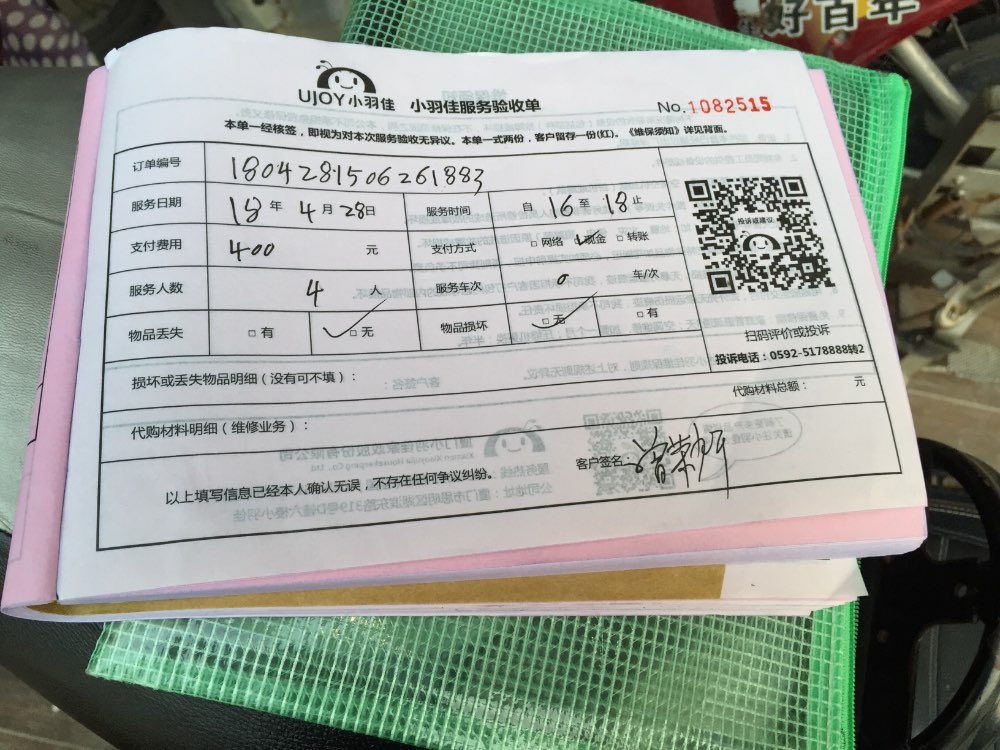 好百年
UJOY小羽佳 小羽佳服务验收单 No.1082515
本单一经核签，即视为对本次服务验收无异议。本单一式两份，客户留存一份(红)。《维保须知》详见背面。
订单编号 1804281506261883
服务日期 18年4月28日 服务时间 自16至18止
支付费用 400元 支付方式 □网络 ☑现金 □转账
服务人数 4人 服务车次 0车/次
物品丢失 □有 ☑无 物品损坏 ☑无 □有
投诉或建议
扫码评价或投诉
投诉电话：0592-5178888转2
损坏或丢失物品明细（没有可不填）：
代购材料总额： 元
代购材料明细（维修业务）：
客户签名：
以上填写信息已经本人确认无误，不存在任何争议纠纷。